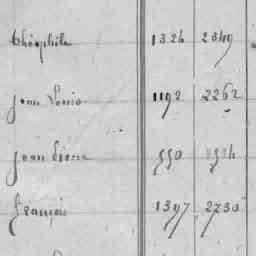 Théophile 1326 2349
Jean Louis 1192 2262
Jean Pierre 550
François 1397 2730